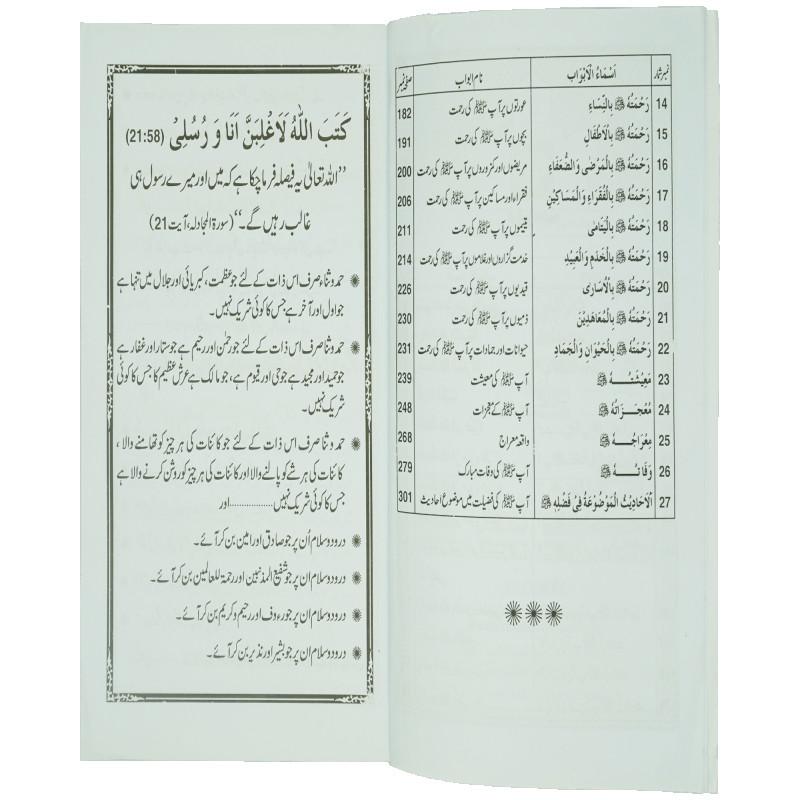 نمبر شمار اَسْمَاءُ الْاَبْوَابِ نام ابواب صفحہ نمبر
14 رَحْمَتُهٗ ﷺ بِالنِّسَاءِ عورتوں پر آپ ﷺ کی رحمت 182
15 رَحْمَتُهٗ ﷺ بِالْاَطْفَالِ بچوں پر آپ ﷺ کی رحمت 191
16 رَحْمَتُهٗ ﷺ بِالْمَرْضٰى وَالضُّعَفَاءِ مریضوں اور کمزوروں پر آپ ﷺ کی رحمت 200
17 رَحْمَتُهٗ ﷺ بِالْفُقَرَاءِ وَالْمَسَاكِيْنِ فقراء اور مساکین پر آپ ﷺ کی رحمت 206
18 رَحْمَتُهٗ ﷺ بِالْيَتَامٰى یتیموں پر آپ ﷺ کی رحمت 211
19 رَحْمَتُهٗ ﷺ بِالْخَدَمِ وَالْعَبِيْدِ خدمت گزاروں اور غلاموں پر آپ ﷺ کی رحمت 214
20 رَحْمَتُهٗ ﷺ بِالْاُسَارٰى قیدیوں پر آپ ﷺ کی رحمت 226
21 رَحْمَتُهٗ ﷺ بِالْمُعَاهَدِيْنَ ذمیوں پر آپ ﷺ کی رحمت 230
22 رَحْمَتُهٗ ﷺ بِالْحَيَوَانِ وَالْجَمَادِ حیوانات اور جمادات پر آپ ﷺ کی رحمت 231
23 مَعِيْشَتُهٗ ﷺ آپ ﷺ کی معیشت 239
24 مُعْجَزَاتُهٗ ﷺ آپ ﷺ کے معجزات 248
25 مِعْرَاجُهٗ ﷺ واقعہ معراج 268
26 وَفَاتُهٗ ﷺ آپ ﷺ کی وفات مبارک 279
27 اَلْاَحَادِيْثُ الْمَوْضُوْعَةُ فِىْ فَضْلِهٖ ﷺ آپ ﷺ کی فضیلت میں موضوع احادیث 301
كَتَبَ اللّٰهُ لَاَغْلِبَنَّ اَنَا وَ رُسُلِىْ (21:58)
”اللہ تعالیٰ یہ فیصلہ فرما چکا ہے کہ میں اور میرے رسول ہی
غالب رہیں گے۔“ (سورۃ المجادلہ، آیت 21)
حمد وثناء صرف اس ذات کے لئے جو عظمت، کبریائی اور جلال میں تنہا ہے
جو اول اور آخر ہے جس کا کوئی شریک نہیں۔
حمد وثنا صرف اس ذات کے لئے جو رحمٰن اور رحیم ہے جو ستار اور غفار ہے
جو حمید اور مجید ہے جو حی اور قیوم ہے، جو مالک ہے عرش عظیم کا جس کا کوئی
شریک نہیں۔
حمد وثنا صرف اس ذات کے لئے جو کائنات کی ہر چیز کو تھامنے والا،
کائنات کی ہر شے کو پالنے والا اور کائنات کی ہر چیز کو روشن کرنے والا ہے
جس کا کوئی شریک نہیں..................اور
درود و سلام اُن پر جو صادق اور امین بن کر آئے۔
درود و سلام ان پر جو شفیع المذنبین اور رحمۃ للعالمین بن کر آئے۔
درود و سلام ان پر جو رءوف اور رحیم و کریم بن کر آئے۔
درود و سلام ان پر جو بشیر اور نذیر بن کر آئے۔